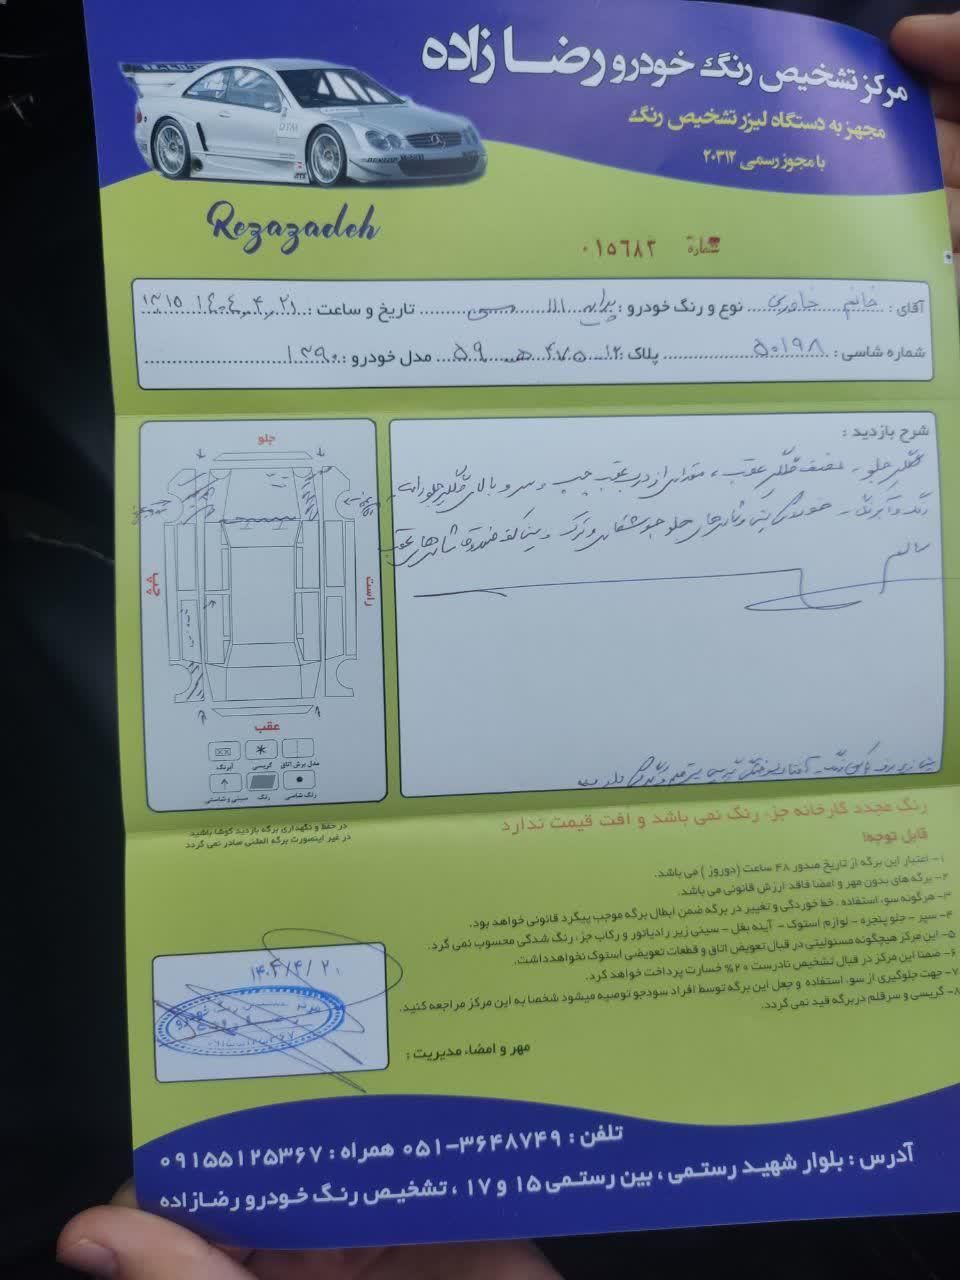 مرکز تشخیص رنگ خودرو رضازاده
مجهز به دستگاه لیزر تشخیص رنگ
با مجوز رسمی ۲۰۳۱۲
Rezazadeh
شماره ۰۱۵۶۸۲
آقای : خانم خاوری نوع و رنگ خودرو : پراید ۱۱۱ تاریخ و ساعت : ۱۴۰۴,۴,۲۱
شماره شاسی : ۵۰۱۹۸ پلاک : ۱۲ ۴۷۵ هـ ۵۹ مدل خودرو : ۱۳۹۰
شرح بازدید :
گلگیر جلو - نصف گلگیر عقب ، مقداری از درب عقب چپ و بالای گلگیر جلو راست
رنگ و آبرنگ - خوردگی سینی و شاسی‌های جلو جوشکاری و ترک و سینی کف صندوق شاسی‌های عقب
سالم
جلو
چپ
راست
عقب
آبرنگ
گریسی
مدل برش اتاق
سینی و شاستی
رنگ
رنگ شاسی
در حفظ و نگهداری برگه بازدید کوشا باشید
در غیر اینصورت برگه المثنی صادر نمی گردد
رنگ مجدد کارخانه جزء رنگ نمی باشد و افت قیمت ندارد
قابل توجه!
۱- اعتبار این برگه از تاریخ صدور ۴۸ ساعت (دوروز ) می باشد.
۲- برگه های بدون مهر و امضا فاقد ارزش قانونی می باشد.
۳- هرگونه سوء استفاده ، خط خوردگی و تغییر در برگه ضمن ابطال برگه موجب پیگرد قانونی خواهد بود.
۴- سپر - جلو پنجره - لوازم استوک - آینه بغل - سینی زیر رادیاتور و رکاب جزء رنگ شدگی محسوب نمی گردد.
۵- این مرکز هیچگونه مسئولیتی در قبال تعویض اتاق و قطعات تعویضی استوک نخواهدداشت.
۶- ضمنا این مرکز در قبال تشخیص نادرست ۲۰% خسارت پرداخت خواهد کرد.
۷- جهت جلوگیری از سوء استفاده و جعل این برگه توسط افراد سودجو توصیه میشود شخصا به این مرکز مراجعه کنید.
۸- گریسی و سرقلم در برگه قید نمی گردد.
مهر و امضاء مدیریت :
تلفن : ۳۶۴۸۷۴۹-۰۵۱ همراه : ۰۹۱۵۵۱۲۵۳۶۷
آدرس : بلوار شهید رستمی ، بین رستمی ۱۵ و ۱۷ ، تشخیص رنگ خودرو رضازاده